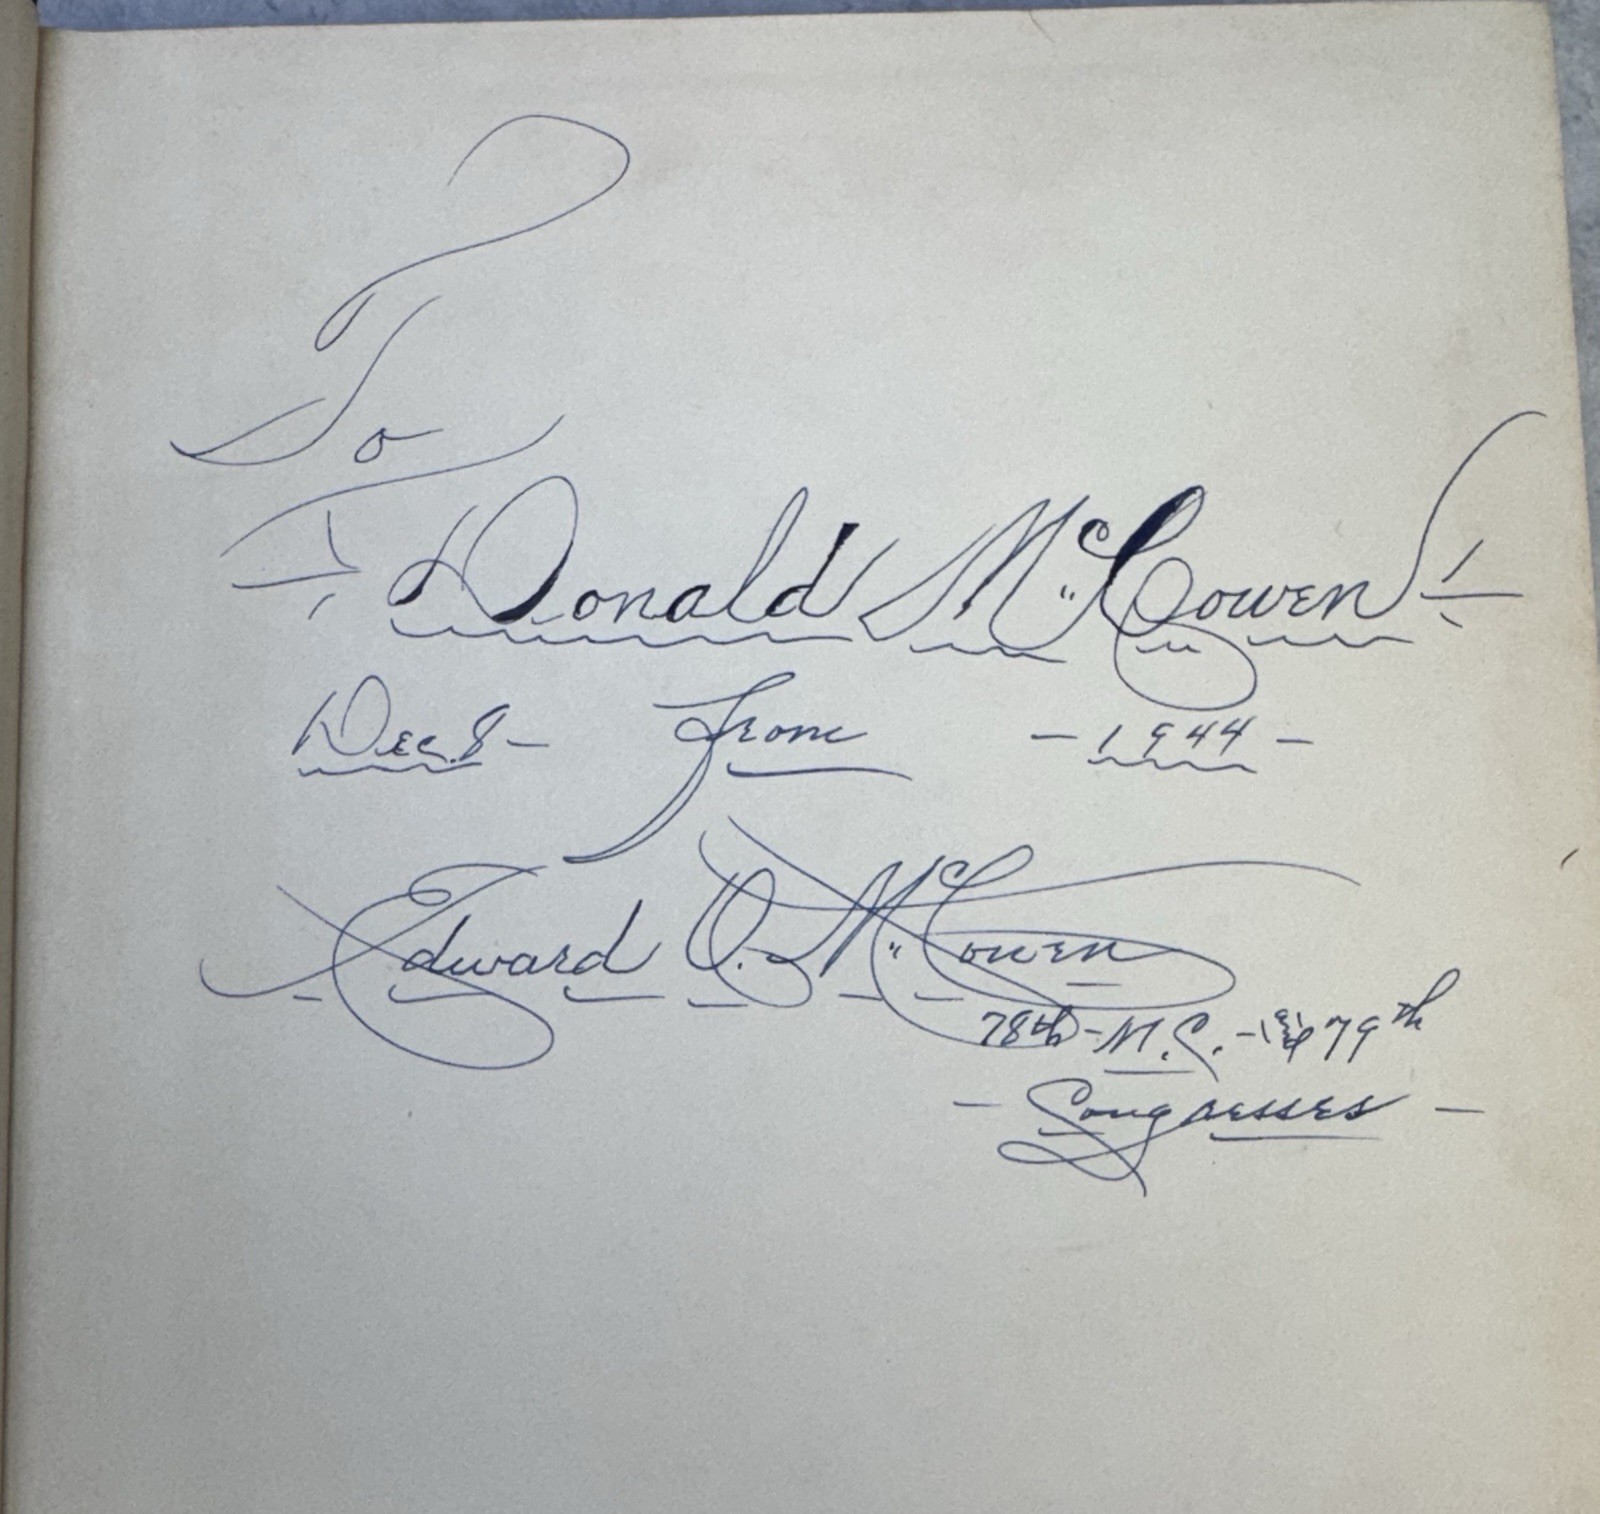 To
Donald McCowen
Dec. 8 - From - 1944 -
Edward O. McCowen
78th - M.C. - & 79th
- Congresses -